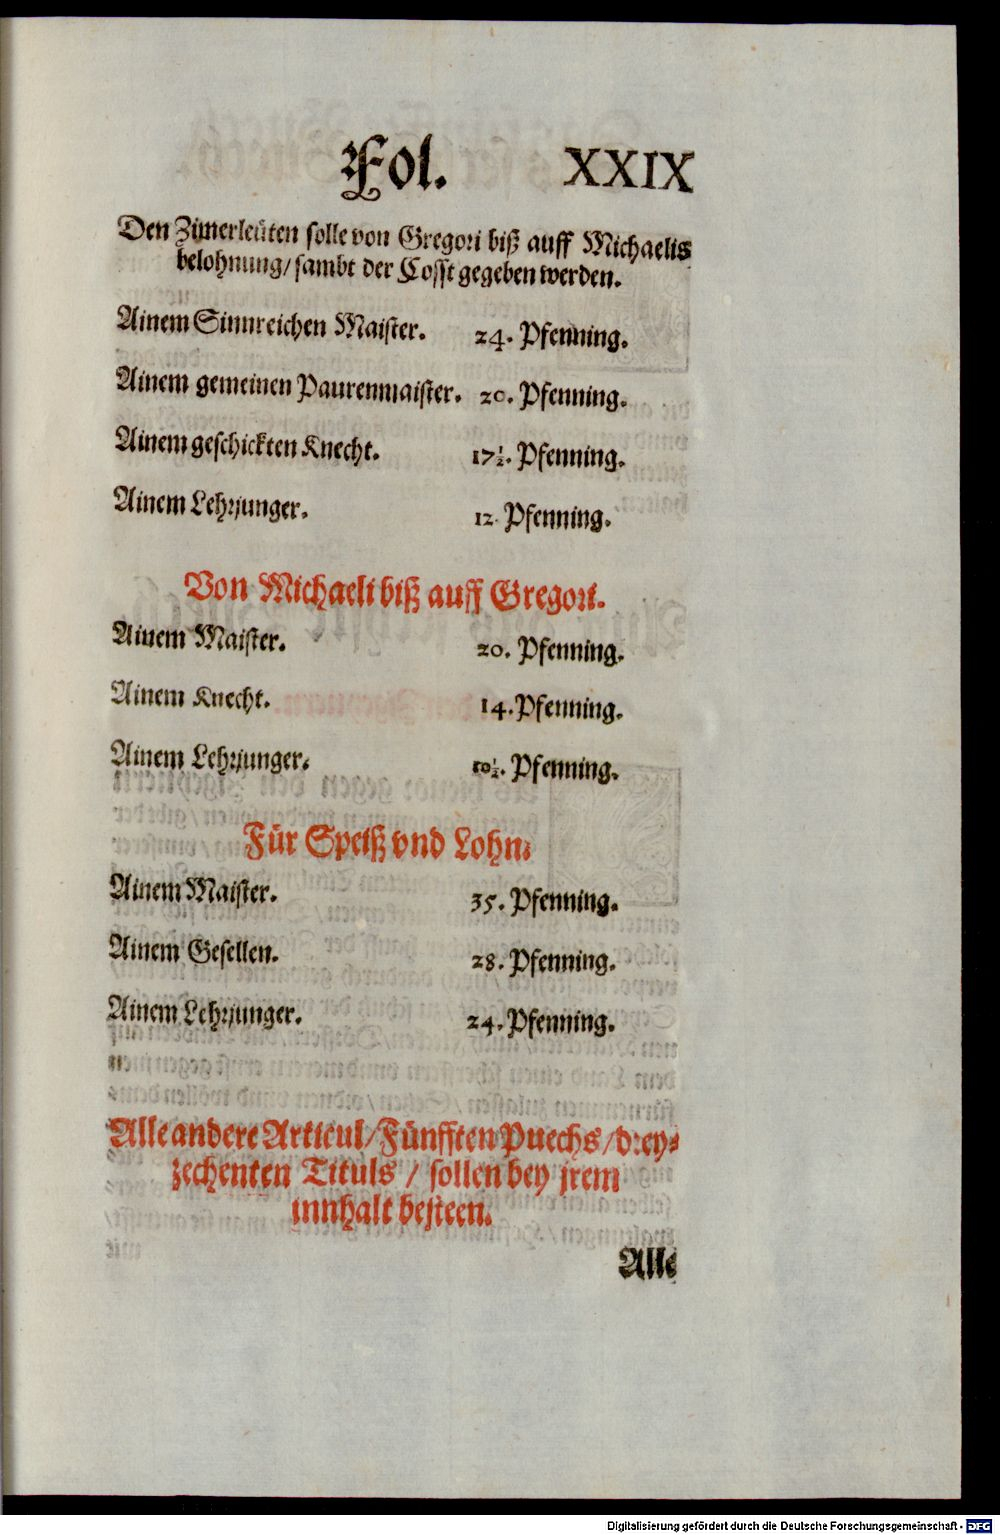 Fol. XXIX
Den Zimerleüten solle von Gregori biß auff Michaelis
belohnung/ sambt der Cosst gegeben werden.
Ainem Sinnreichen Maister. 24. Pfenning.
Ainem gemeinen Paurenmaister. 20. Pfenning.
Ainem geschickten Knecht. 17½. Pfenning.
Ainem Lehrjunger. 12. Pfenning.
Von Michaeli biß auff Gregori.
Ainem Maister. 20. Pfenning.
Ainem Knecht. 14. Pfenning.
Ainem Lehrjunger. 10½. Pfenning.
Für Speiß vnd Lohn.
Ainem Maister. 35. Pfenning.
Ainem Gesellen. 28. Pfenning.
Ainem Lehrjunger. 24. Pfenning.
Alle andere Articul/ Fünfften Puechs/ drey-
zechenten Tituls / sollen bey jrem
innhalt besteen.
Alle
Digitalisierung gefördert durch die Deutsche Forschungsgemeinschaft - DFG